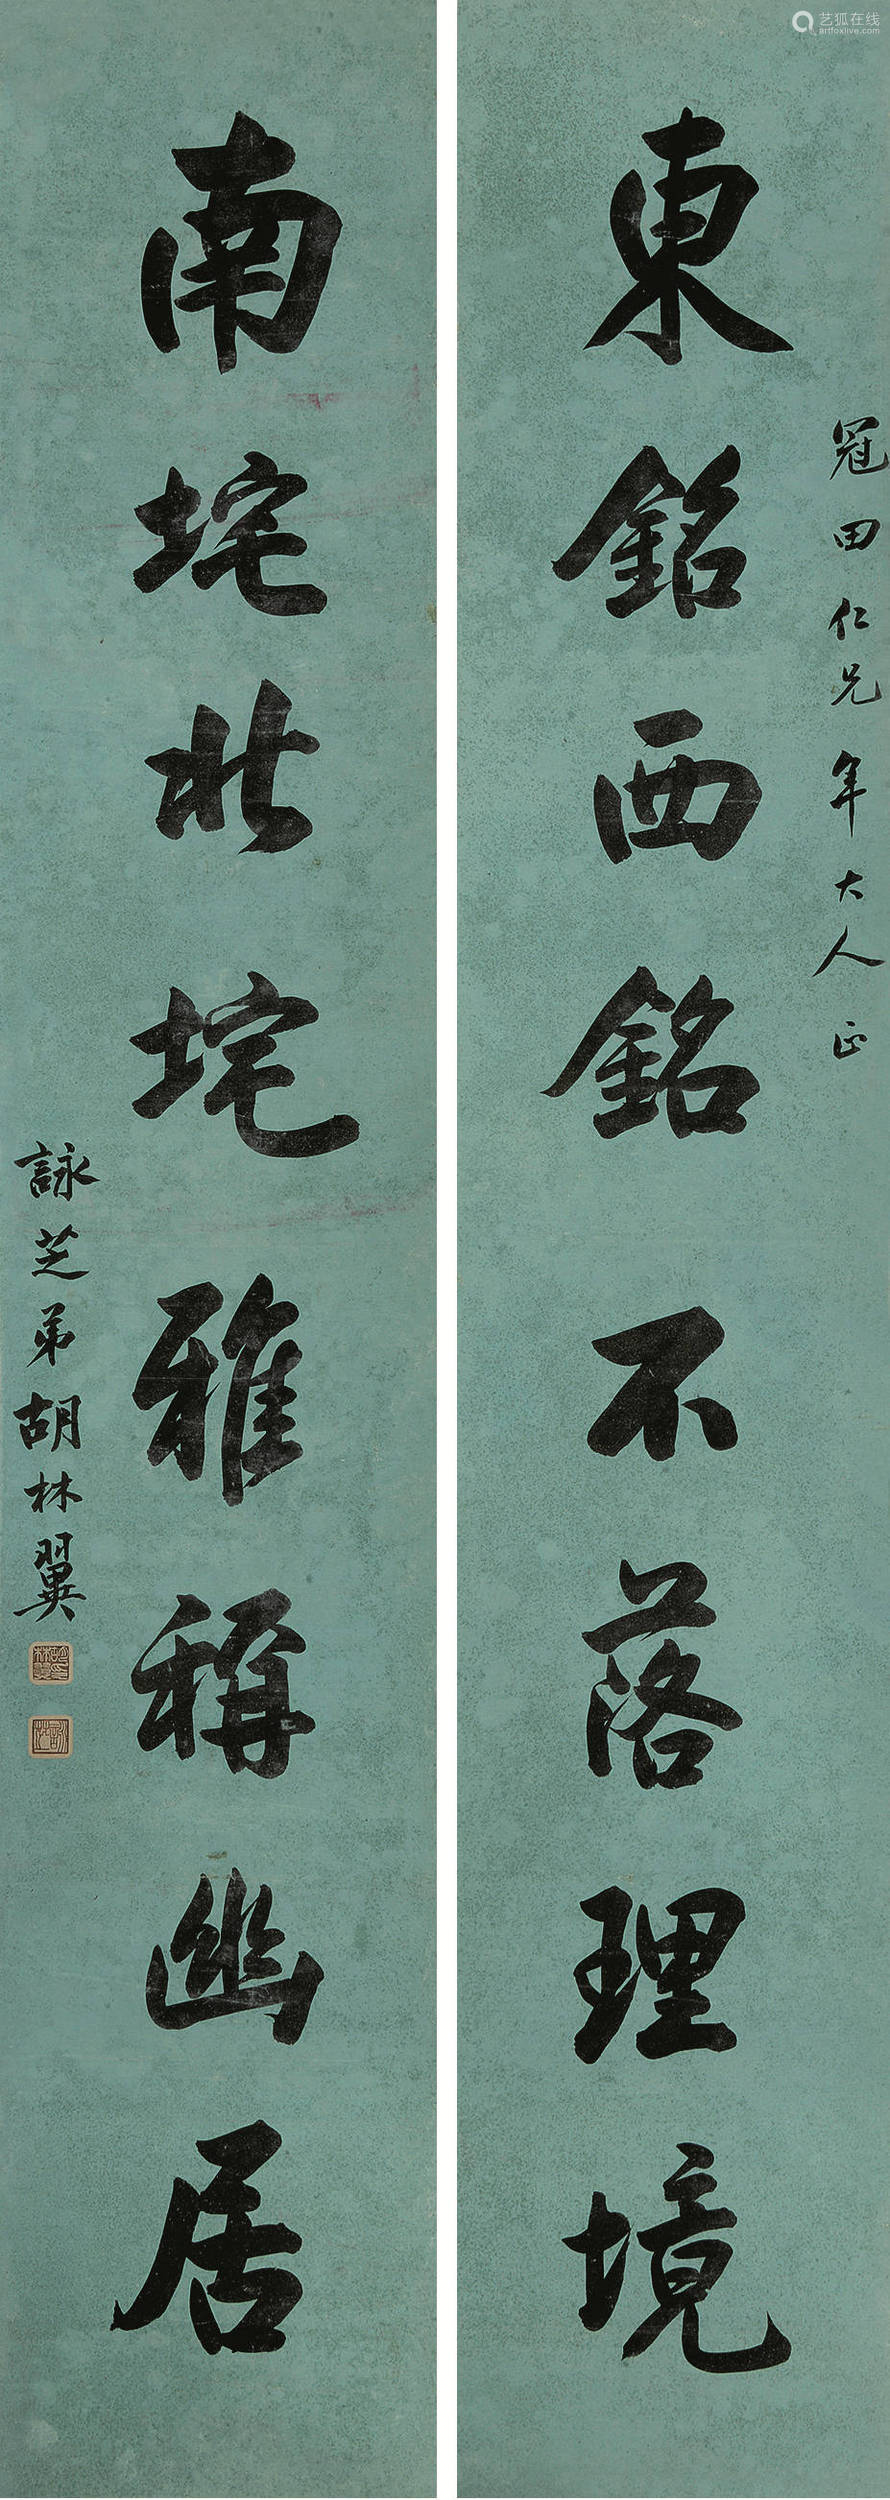 冠田仁兄年大人正
東銘西銘不落理境
南垞北垞雅稱幽居
詠芝弟胡林翼
艺狐在线
artfoxlive.com